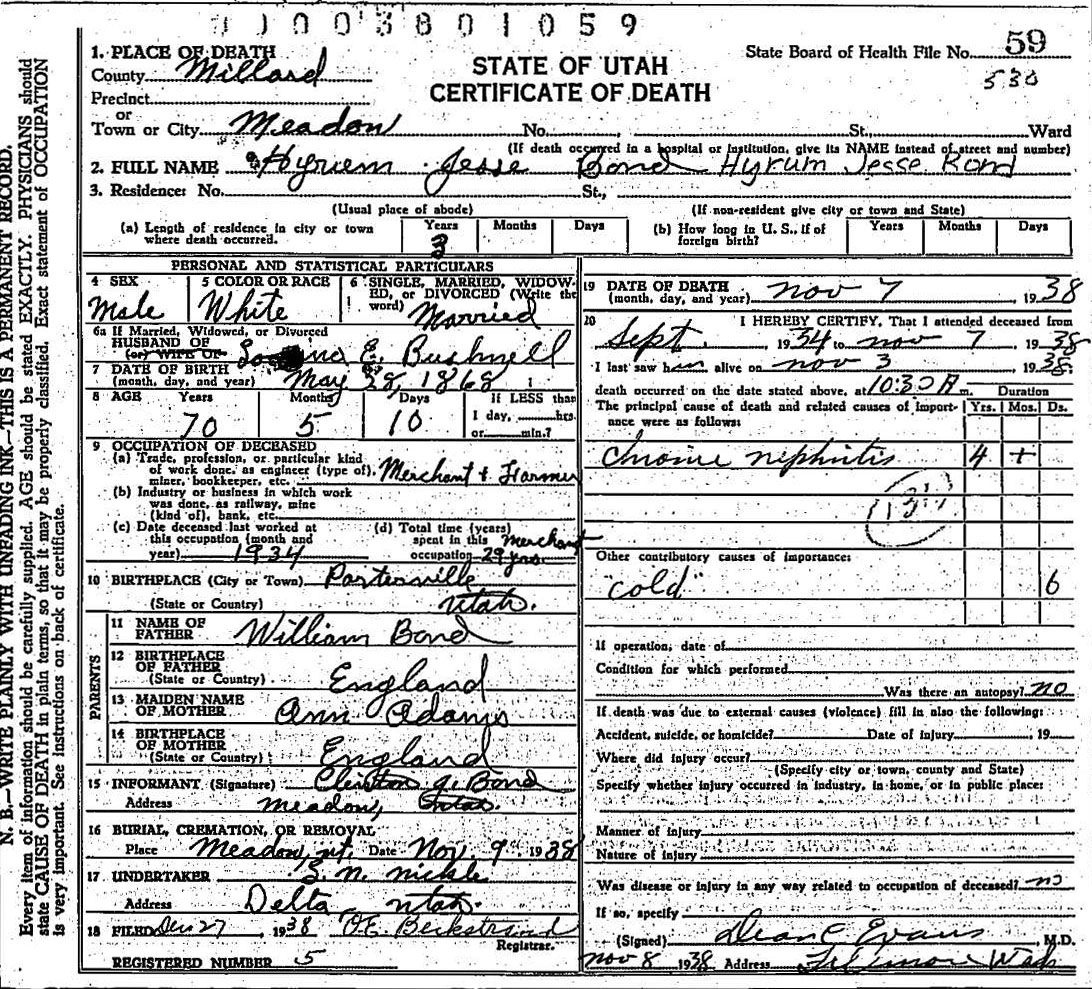 0003801059
1. PLACE OF DEATH
County Millard
Precinct
or
Town or City Meadow No. , St., Ward
STATE OF UTAH
CERTIFICATE OF DEATH
State Board of Health File No. 59
530
(If death occurred in a hospital or institution, give its NAME instead of street and number)
2. FULL NAME Hyrum Jesse Bond Hyrum Jesse Bond
3. Residence: No. St.,
(Usual place of abode) (If non-resident give city or town and State)
(a) Length of residence in city or town where death occurred. Years 3 Months Days
(b) How long in U. S., if of foreign birth? Years Months Days
PERSONAL AND STATISTICAL PARTICULARS
4 SEX Male
5 COLOR OR RACE White
6 SINGLE, MARRIED, WIDOWED, or DIVORCED (Write the word) Married
6a If Married, Widowed, or Divorced
HUSBAND OF
(or) WIFE OF E. Bushnell
7 DATE OF BIRTH
(month, day, and year) May 28, 1868
8 AGE Years 70 Months 5 Days 10 If LESS than 1 day, hrs. or min.?
9 OCCUPATION OF DECEASED
(a) Trade, profession, or particular kind
of work done, as engineer (type of),
miner, bookkeeper, etc. Merchant & Farmer
(b) Industry or business in which work
was done, as railway, mine
(kind of), bank, etc.
(c) Date deceased last worked at
this occupation (month and
year) 1934
(d) Total time (years)
spent in this Merchant
occupation 29 yrs.
10 BIRTHPLACE (City or Town) Porterville
(State or Country) Utah.
PARENTS
11 NAME OF
FATHER William Bond
12 BIRTHPLACE
OF FATHER
(State or Country) England
13 MAIDEN NAME
OF MOTHER Ann Adams
14 BIRTHPLACE
OF MOTHER
(State or Country) England
15 INFORMANT (Signature) Clinton J. Bond
Address Meadow, Utah
16 BURIAL, CREMATION, OR REMOVAL
Place Meadow, ut. Date Nov. 9 1938
17 UNDERTAKER S. N. Nickle
Address Delta Utah
18 FILED Dec 27 1938 O.E. Beckstrand
Registrar.
REGISTERED NUMBER 5
19 DATE OF DEATH
(month, day, and year) Nov 7 1938
20 I HEREBY CERTIFY, That I attended deceased from
Sept. 1934 to Nov 7 1938
I last saw him alive on Nov 3 1938.
death occurred on the date stated above, at 10:30 A m. Duration
The principal cause of death and related causes of importance were as follows: Yrs. Mos. Ds.
Chronic nephritis 4 +
131
Other contributory causes of importance:
"cold" 6
If operation, date of
Condition for which performed
Was there an autopsy? no
If death was due to external causes (violence) fill in also the following:
Accident, suicide, or homicide? Date of injury , 19
Where did injury occur?
(Specify city or town, county and State)
Specify whether injury occurred in industry, in home, or in public place:
Manner of injury
Nature of injury
Was disease or injury in any way related to occupation of deceased? no
If so, specify
(Signed) Dean C Evans M.D.
Nov 8 1938 Address Fillmore Utah
N. B.—WRITE PLAINLY WITH UNFADING INK—THIS IS A PERMANENT RECORD.
Every item of information should be carefully supplied. AGE should be stated EXACTLY. PHYSICIANS should
state CAUSE OF DEATH in plain terms, so that it may be properly classified. Exact statement of OCCUPATION
is very important. See instructions on back of certificate.